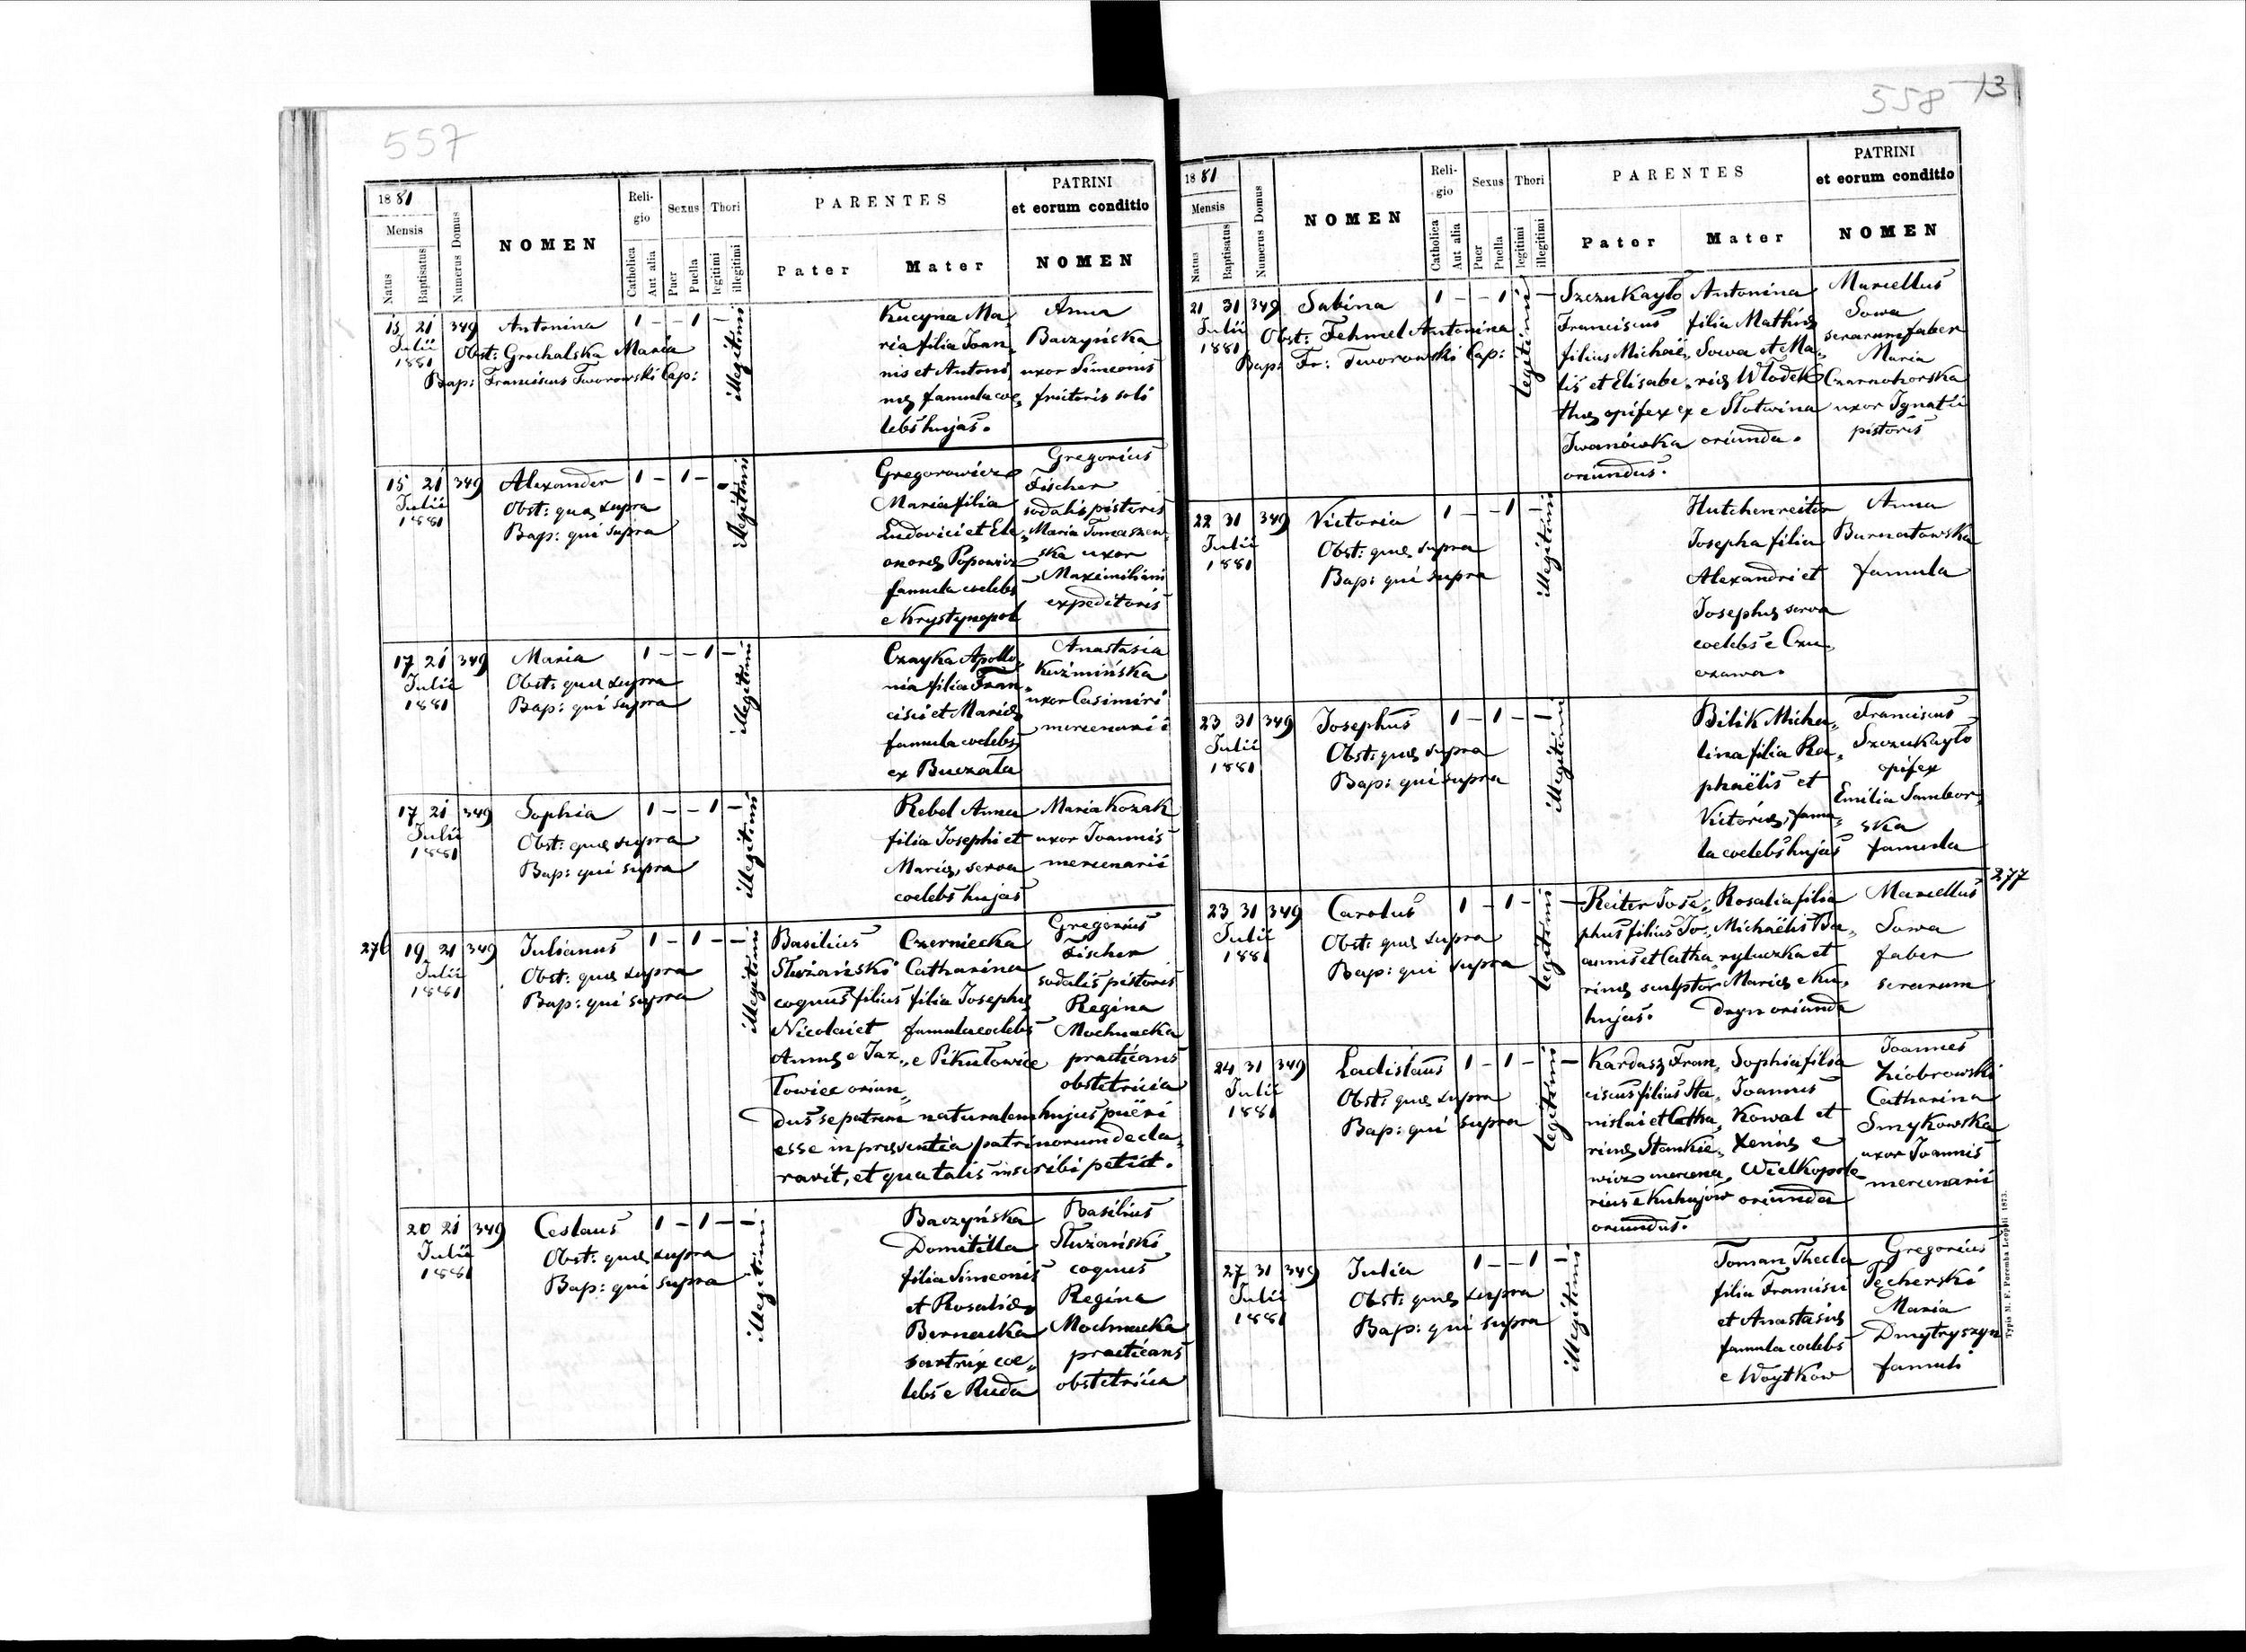 557
1881
Mensis
Natus
Baptisatus
Numerus Domus
NOMEN
Reli-
gio
Catholica
Aut alia
Sexus
Puer
Puella
Thori
legitimi
illegitimi
PARENTES
Pater
Mater
PATRINI
et eorum conditio
NOMEN
15 21 349 Antonina 1 - - 1 -
Julii
1881
Obst: Grochalska Maria
Bap: Franciscus Tworowski Cap:
illegitimi
Kucyna Ma„
ria filia Joan„
nis et Antoni„
næ famula coe„
lebs hujas.
Anna
Baczyńska
uxor Simeonis
15 21 349 Alexander 1 - 1 -
Julii
1881
Obst: quæ supra
Bap: qui supra
illegitimi
Gregorowicz
Maria filia
Ludovici et Ele„
onoræ Popowicz
famula coelebs
e Krystynopol
Gregorius
Fischer
sodalis pistoris
Maria Tomaszew„
ska uxor
Maximiliani
expeditoris
17 21 349 Maria 1 - - 1 -
Julii
1881
Obst: quæ supra
Bap: qui supra
illegitimi
Czayka Apollo„
nia filia Fran„
cisci et Mariæ
famula coelebs
ex Buczała
Anastasia
Kuźmińska
uxor Casimiri
mercenarii
17 21 349 Sophia 1 - - 1 -
Julii
1881
Obst: quæ supra
Bap: qui supra
illegitimi
Rebel Anna
filia Josephi et
Mariæ, serva
coelebs hujas
Maria Kozak
uxor Joannis
mercenarii
276 19 21 349 Julianus 1 - 1 - -
Julii
1881
Obst: quæ supra
Bap: qui supra
illegitimi
Basilius
Służański
coquus filius
Nicolai et
Annæ e Jaz„
łowice oriun„
Czerniecka
Catharina
filia Josephæ
famula coelebs
e Pikułowice
Gregorius
Fischer
sodalis pistoris
Regina
Mochnacka
practicans
obstetricia
dus se patrem naturalem hujus püeri
esse in præsentia patrinorum decla„
ravit, et qua talis inscribi petiit.
20 21 349 Ceslaus 1 - 1 - -
Julii
1881
Obst: quæ supra
Bap: qui supra
illegitimi
Baczyńska
Domitilla
filia Simeonis
et Rosaliæ
Bernacka
sartrix coe„
lebs e Ruda
Basilius
Służański
coquus
Regina
Mochnacka
practicans
obstetricia
558
13
1881
Mensis
Natus
Baptisatus
Numerus Domus
NOMEN
Reli-
gio
Catholica
Aut alia
Sexus
Puer
Puella
Thori
legitimi
illegitimi
PARENTES
Pater
Mater
PATRINI
et eorum conditio
NOMEN
21 31 349 Sabina 1 - - 1 -
Julii
1881
Obst: Fehmel Antonina
Bap: Fr: Tworowski Cap:
legitimi
Szczukayło
Franciscus
filius Michaë„
lis et Elisabe„
thæ opifex ex
Iwanówka
oriundus.
Antonina
filia Mathiæ
Sowa et Ma„
riæ Włodek
e Słotwina
oriunda.
Marcellus
Sowa
serarum faber
Maria
Czarnohorska
uxor Ignatii
pistoris
22 31 349 Victoria 1 - - 1 -
Julii
1881
Obst: quæ supra
Bap: qui supra
illegitimi
Hutchenreiter
Josepha filia
Alexandri et
Josephæ serva
coelebs e Czu„
czawa.
Anna
Burnatowska
famula
23 31 349 Josephus 1 - 1 - -
Julii
1881
Obst: quæ supra
Bap: qui supra
illegitimi
Bilik Micha„
lina filia Ra„
phaëlis et
Victoriæ, famu„
la coelebs hujas
Franciscus
Szczukayło
opifex
Emilia Sambor„
ska
famula
277
23 31 349 Carolus 1 - 1 - -
Julii
1881
Obst: quæ supra
Bap: qui supra
legitimi
Reiter Jose„
phus filius Jo„
annis et Catha„
rinæ sculptor
hujas.
Rosalia filia
Michaëlis Ba„
ryluczka et
Mariæ e Ku„
dryn oriunda
Marcellus
Sowa
faber
serarum
24 31 349 Ladislaus 1 - 1 - -
Julii
1881
Obst: quæ supra
Bap: qui supra
legitimi
Kardasz Fran„
ciscus filius Sta„
nislai et Catha„
rinæ Stankie„
wicz mercena„
rius e Kuhajów
oriundus.
Sophia filia
Joannis
Kowal et
Xeniæ e
Wielkopole
oriunda
Joannes
Ziobrowski
Catharina
Smykowska
uxor Joannis
mercenarii
27 31 349 Julia 1 - - 1 -
Julii
1881
Obst: quæ supra
Bap: qui supra
illegitimi
Toman Thecla
filia Francisci
et Anastasiæ
famula coelebs
e Woytkow
Gregorius
Pecherski
Maria
Dmytryszyn
famuli
Typis M. F. Poremba Leopoli 1873.